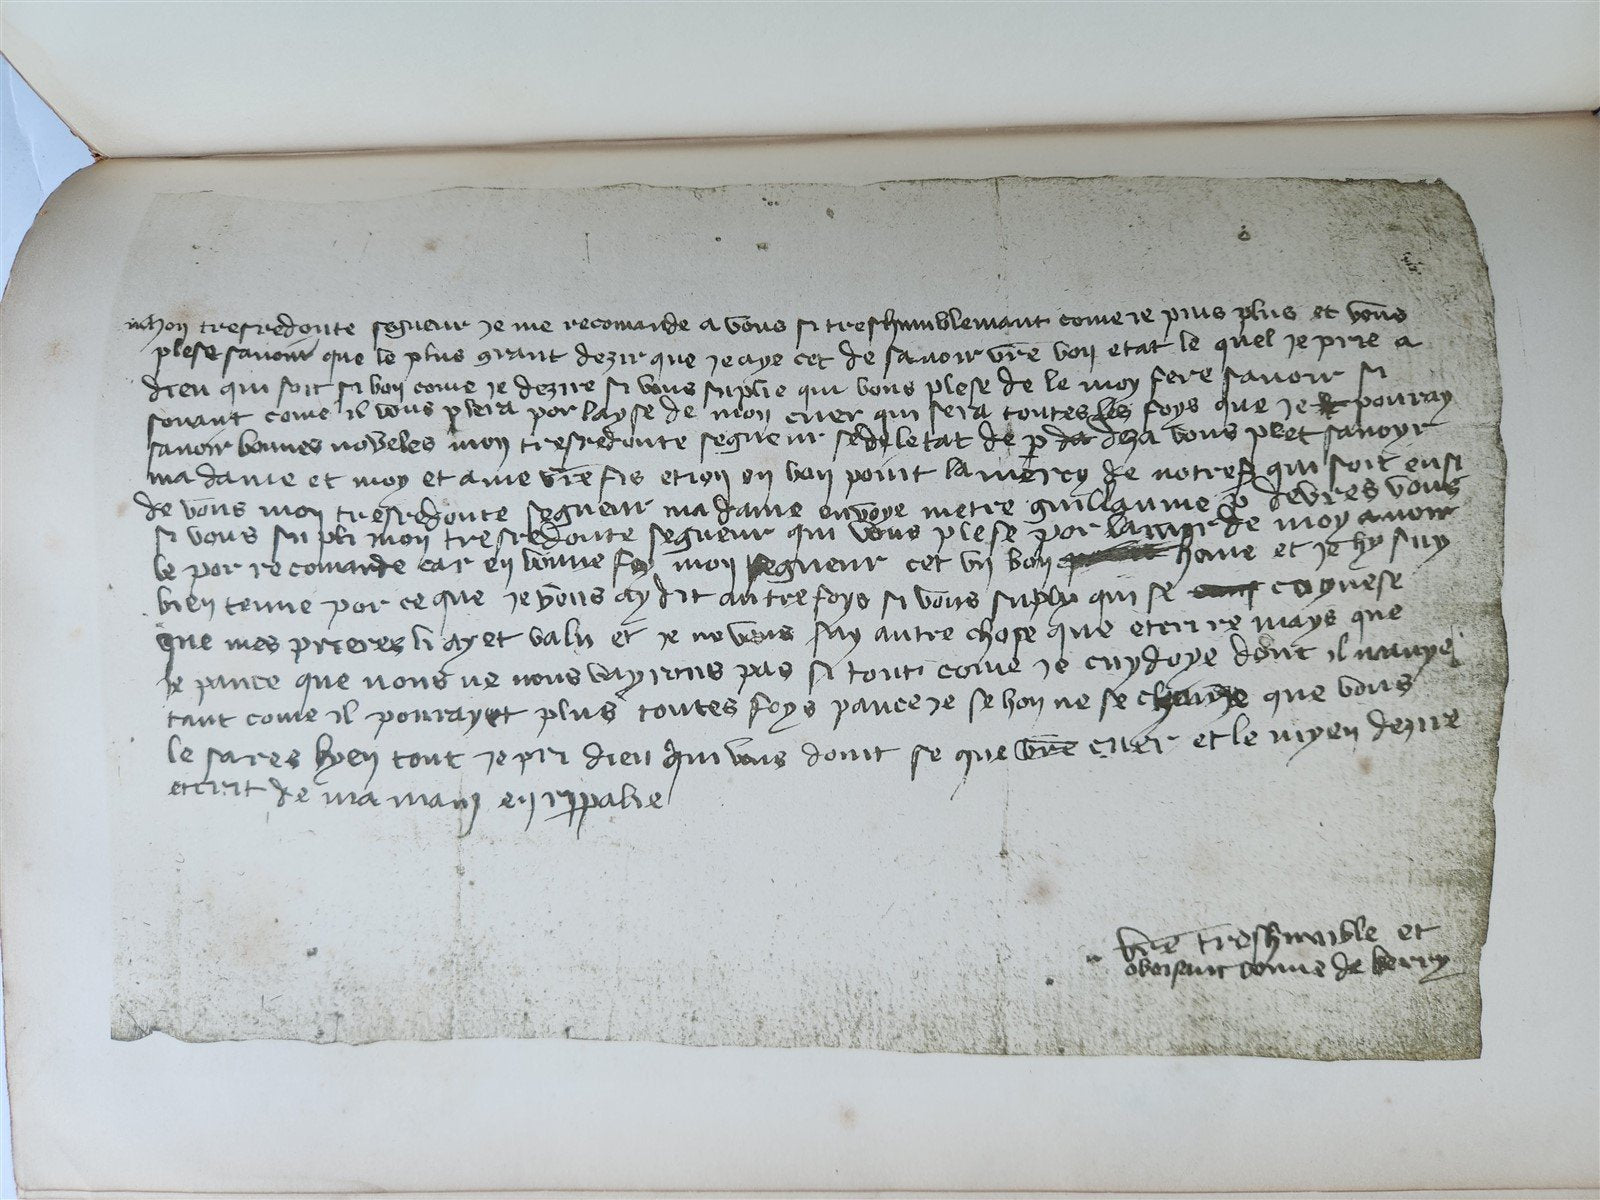 Mon tresredoute segneur je me recomande a vous si treshumblemant come je puis plus et vous
plese savoir que le plus grant dezir que je aye cet de savoir vre bon etat le quel je prie a
dieu qui soit si bon come je dezire si vous suplie qui vous plese de le moy fere savoir si
sovant come il vous plera por layse de mon cuer qui sera toutes les foys que je pouray
savoir bonnes noveles mon tresredoute segneur se de letat de p de dza vous plet savoyr
madame et moy et ame vre fis etion en bon point la mercy de notre qui soit ensi
de vous mon tresredoute segneur madame envoye metre guillaume devres vous
si vous supli mon tresredoute segneur qui vous plese por lamor de moy avoir
le por recomande car en bonne foy mon segneur cet un bon home et je hy suy
bien tenue por ce que je vous ay dit autre foys si vous supli qui se coynese
que mes prieres li ayet valu et je ne vous suy autre chose que etcrire mays que
je pance que nous ne nous vayrons pas si tout come je cuydoye dont il manuye
tant come il pourayet plus toutes foys pance je se hon ne se change que vous
le sares byen tout je pri dieu qui vous doint se que vre cuer et le myen dezire
etcrit de ma main en rippalie
vre treshumble et
obeisant bonne de berry